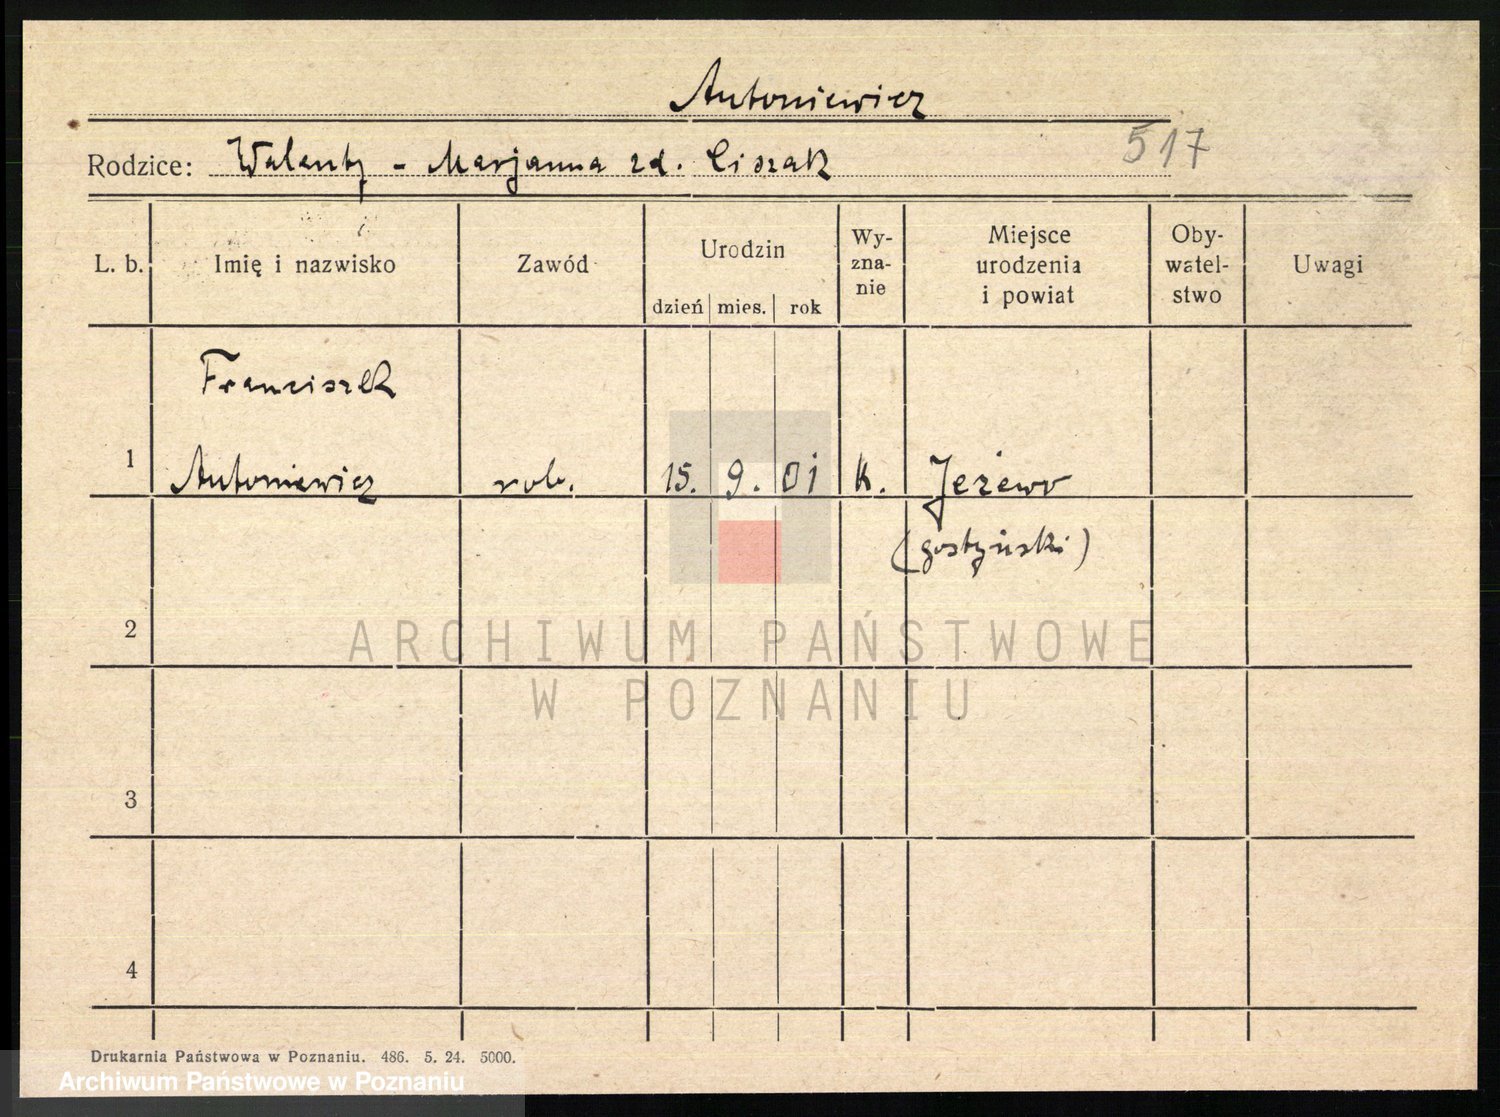 Antoniewicz
517
Rodzice: Walenty - Marjanna zd. Ciszak
L. b. Imię i nazwisko Zawód Urodzin dzień mies. rok Wy-znanie Miejsce urodzenia i powiat Oby-watel-stwo Uwagi
Franciszek
1 Antoniewicz rob. 15. 9. 01 k. Jeżewo
(gostyński)
2
ARCHIWUM PAŃSTWOWE
W POZNANIU
3
4
Drukarnia Państwowa w Poznaniu. 486. 5. 24. 5000.
Archiwum Państwowe w Poznaniu